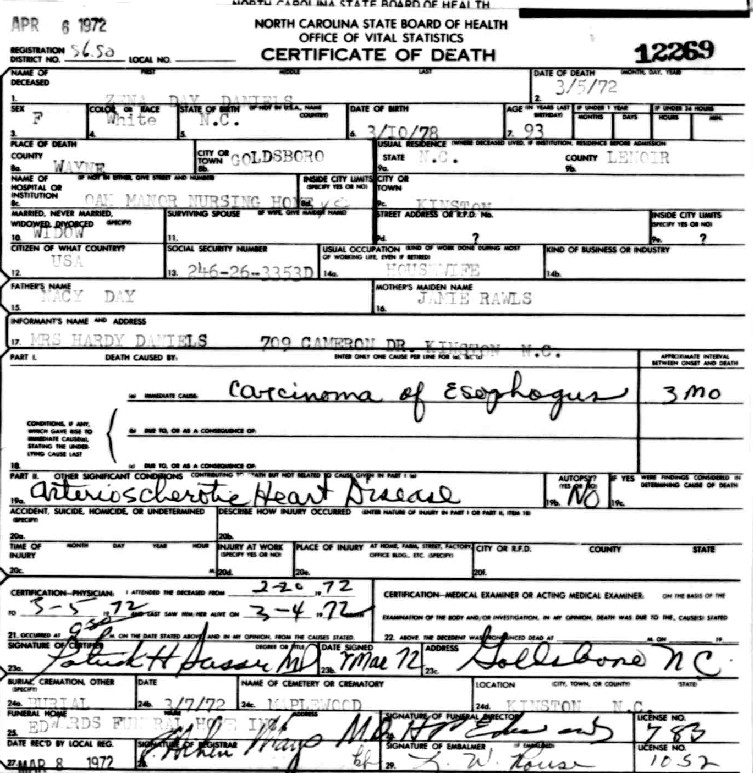 NORTH CAROLINA STATE BOARD OF HEALTH
APR 6 1972
NORTH CAROLINA STATE BOARD OF HEALTH
OFFICE OF VITAL STATISTICS
CERTIFICATE OF DEATH
12269
REGISTRATION DISTRICT NO. 56.50 LOCAL NO.
NAME OF DECEASED FIRST MIDDLE LAST DATE OF DEATH (MONTH, DAY, YEAR)
1. ZENA DAY DANIELS 2. 3/5/72
SEX COLOR OR RACE STATE OF BIRTH (IF NOT IN U.S.A., NAME COUNTRY) DATE OF BIRTH AGE (IN YEARS LAST BIRTHDAY) IF UNDER 1 YEAR MONTHS DAYS IF UNDER 24 HOURS HOURS MIN.
3. F 4. White 5. N.C. 6. 3/10/78 7. 93
PLACE OF DEATH USUAL RESIDENCE (WHERE DECEASED LIVED, IF INSTITUTION, RESIDENCE BEFORE ADMISSION)
COUNTY CITY OR TOWN STATE COUNTY
8a. WAYNE 8b. GOLDSBORO 9a. N.C. 9b. LENOIR
NAME OF HOSPITAL OR INSTITUTION (IF NOT IN EITHER, GIVE STREET AND NUMBER) INSIDE CITY LIMITS (SPECIFY YES OR NO) CITY OR TOWN
8c. OAK MANOR NURSING HOME 8d. 9c. KINSTON
MARRIED, NEVER MARRIED, WIDOWED, DIVORCED (SPECIFY) SURVIVING SPOUSE (IF WIFE, GIVE MAIDEN NAME) STREET ADDRESS OR R.F.D. No. INSIDE CITY LIMITS (SPECIFY YES OR NO)
10. WIDOW 11. 9d. ? 9e. ?
CITIZEN OF WHAT COUNTRY? SOCIAL SECURITY NUMBER USUAL OCCUPATION (KIND OF WORK DONE DURING MOST OF WORKING LIFE, EVEN IF RETIRED) KIND OF BUSINESS OR INDUSTRY
12. USA 13. 246-26-3353D 14a. HOUSEWIFE 14b.
FATHER'S NAME MOTHER'S MAIDEN NAME
15. MACY DAY 16. JANIE RAWLS
INFORMANT'S NAME AND ADDRESS
17. MRS HARDY DANIELS 709 CAMERON DR. KINSTON N.C.
PART I. DEATH CAUSED BY: ENTER ONLY ONE CAUSE PER LINE FOR (a), (b), (c) APPROXIMATE INTERVAL BETWEEN ONSET AND DEATH
(a) IMMEDIATE CAUSE Carcinoma of Esophogus 3 MO
CONDITIONS, IF ANY, WHICH GAVE RISE TO IMMEDIATE CAUSE(a), STATING THE UNDERLYING CAUSE LAST
(b) DUE TO, OR AS A CONSEQUENCE OF:
18. (c) DUE TO, OR AS A CONSEQUENCE OF:
PART II. OTHER SIGNIFICANT CONDITIONS CONTRIBUTING TO DEATH BUT NOT RELATED TO CAUSE GIVEN IN PART I (a) AUTOPSY? (YES OR NO) IF YES WERE FINDINGS CONSIDERED IN DETERMINING CAUSE OF DEATH
19a. Arterioscherotic Heart Disease 19b. NO 19c.
ACCIDENT, SUICIDE, HOMICIDE, OR UNDETERMINED (SPECIFY) DESCRIBE HOW INJURY OCCURRED (ENTER NATURE OF INJURY IN PART I OR PART II, ITEM 18)
20a. 20b.
TIME OF INJURY MONTH DAY YEAR HOUR INJURY AT WORK (SPECIFY YES OR NO) PLACE OF INJURY AT HOME, FARM, STREET, FACTORY, OFFICE BLDG., ETC. (SPECIFY) CITY OR R.F.D. COUNTY STATE
20c. M. 20d. 20e. 20f.
CERTIFICATION—PHYSICIAN: I ATTENDED THE DECEASED FROM 2-20 1972 CERTIFICATION—MEDICAL EXAMINER OR ACTING MEDICAL EXAMINER: ON THE BASIS OF THE
TO 3-5 1972 AND LAST SAW HIM/HER ALIVE ON 3-4 1972 EXAMINATION OF THE BODY AND/OR INVESTIGATION, IN MY OPINION, DEATH WAS DUE TO THE CAUSE(S) STATED
21. OCCURRED AT M. ON THE DATE STATED ABOVE, AND IN MY OPINION, FROM THE CAUSES STATED. 22. ABOVE. THE DECEDENT WAS PRONOUNCED DEAD AT M. ON 19
SIGNATURE OF CERTIFIER DEGREE OR TITLE DATE SIGNED ADDRESS
23a. Patrick H Sasser MD 23b. 7 Mar 72 23c. Goldsboro NC
BURIAL, CREMATION, OTHER (SPECIFY) DATE NAME OF CEMETERY OR CREMATORY LOCATION (CITY, TOWN, OR COUNTY) STATE
24a. BURIAL 24b. 3/7/72 24c. MAPLEWOOD 24d. KINSTON N.C.
FUNERAL HOME ADDRESS SIGNATURE OF FUNERAL DIRECTOR LICENSE NO.
25. EDWARDS FUNERAL HOME INC 783
DATE REC'D BY LOCAL REG. SIGNATURE OF REGISTRAR SIGNATURE OF EMBALMER (IF EMBALMED) LICENSE NO.
27. MAR 8 1972 28. 29. L. W. House 1052